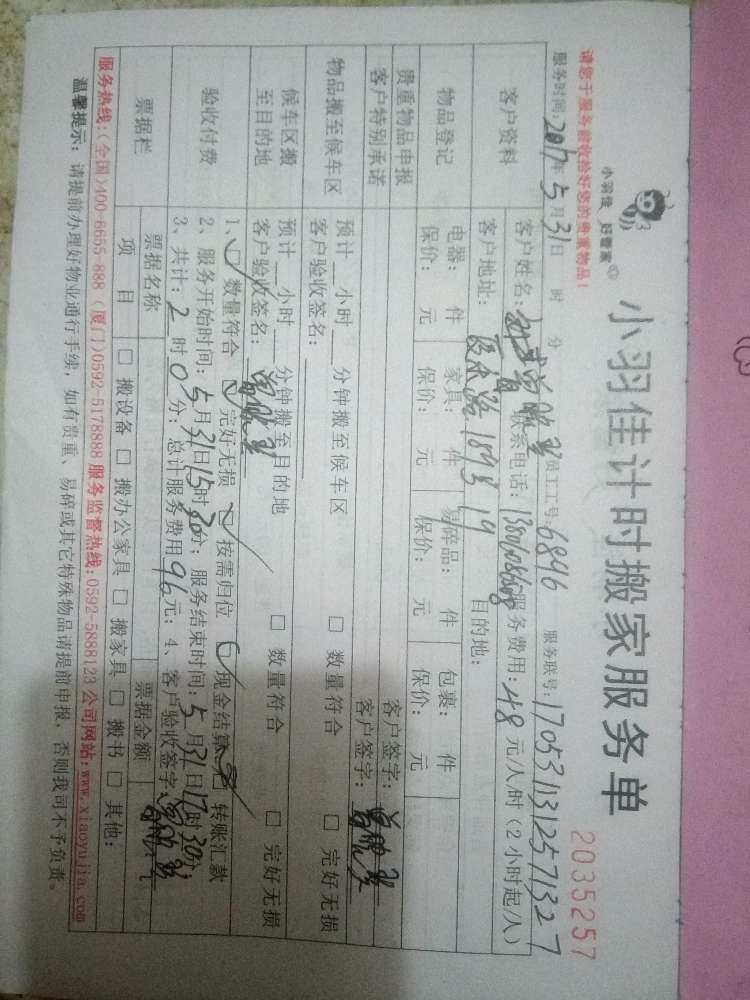 小羽佳 好管家
小羽佳计时搬家服务单
2035257
请您于服务前收捡好您的贵重物品!
服务时间:2017年5月31日 时 分 员工工号:6896 服务联号:
客户资料
客户姓名: 联系电话: 服务费用:48元/人/时(2小时起/人)
客户地址: 目的地:
物品登记
电器: 件 家具: 件 易碎品: 件 包裹: 件
保价: 元 保价: 元 保价: 元 保价: 元
贵重物品申报 客户签字:
客户特别承诺 客户签字:
物品搬至候车区
预计__小时__分钟搬至候车区 □ 数量符合 □ 完好无损
客户验收签名:
候车区搬至目的地
预计__小时__分钟搬至目的地 □ 数量符合 □ 完好无损
客户验收签名:
验收付费
1、☑ 数量符合 ☑ 完好无损 ☑ 按需归位 ☑ 现金结算 □ 转账汇款
2、服务开始时间:5月31日15时30分;服务结束时间:5月31日17时30分;
3、共计:2时0分;总计服务费用96元;4、客户验收签字:
票据栏
票据名称 票据金额
项目 □ 搬设备 □ 搬办公家具 □ 搬家具 □ 搬书 □ 其他:
服务热线:(全国)400-6655-888 (厦门)0592-5178888 服务监督热线:0592-5888123 公司网站:www.xiaoyujia.com
温馨提示:请提前办理好物业通行手续,如有贵重、易碎或其它特殊物品请提前申报,否则我司不予负责。